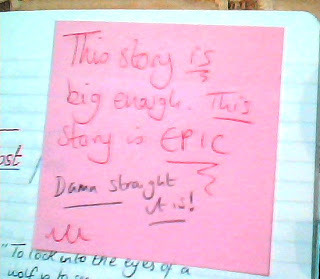 This story is
big enough. This
story is EPIC
Damn straight
it is!
ost
"To look into the eyes of a
wolf is to